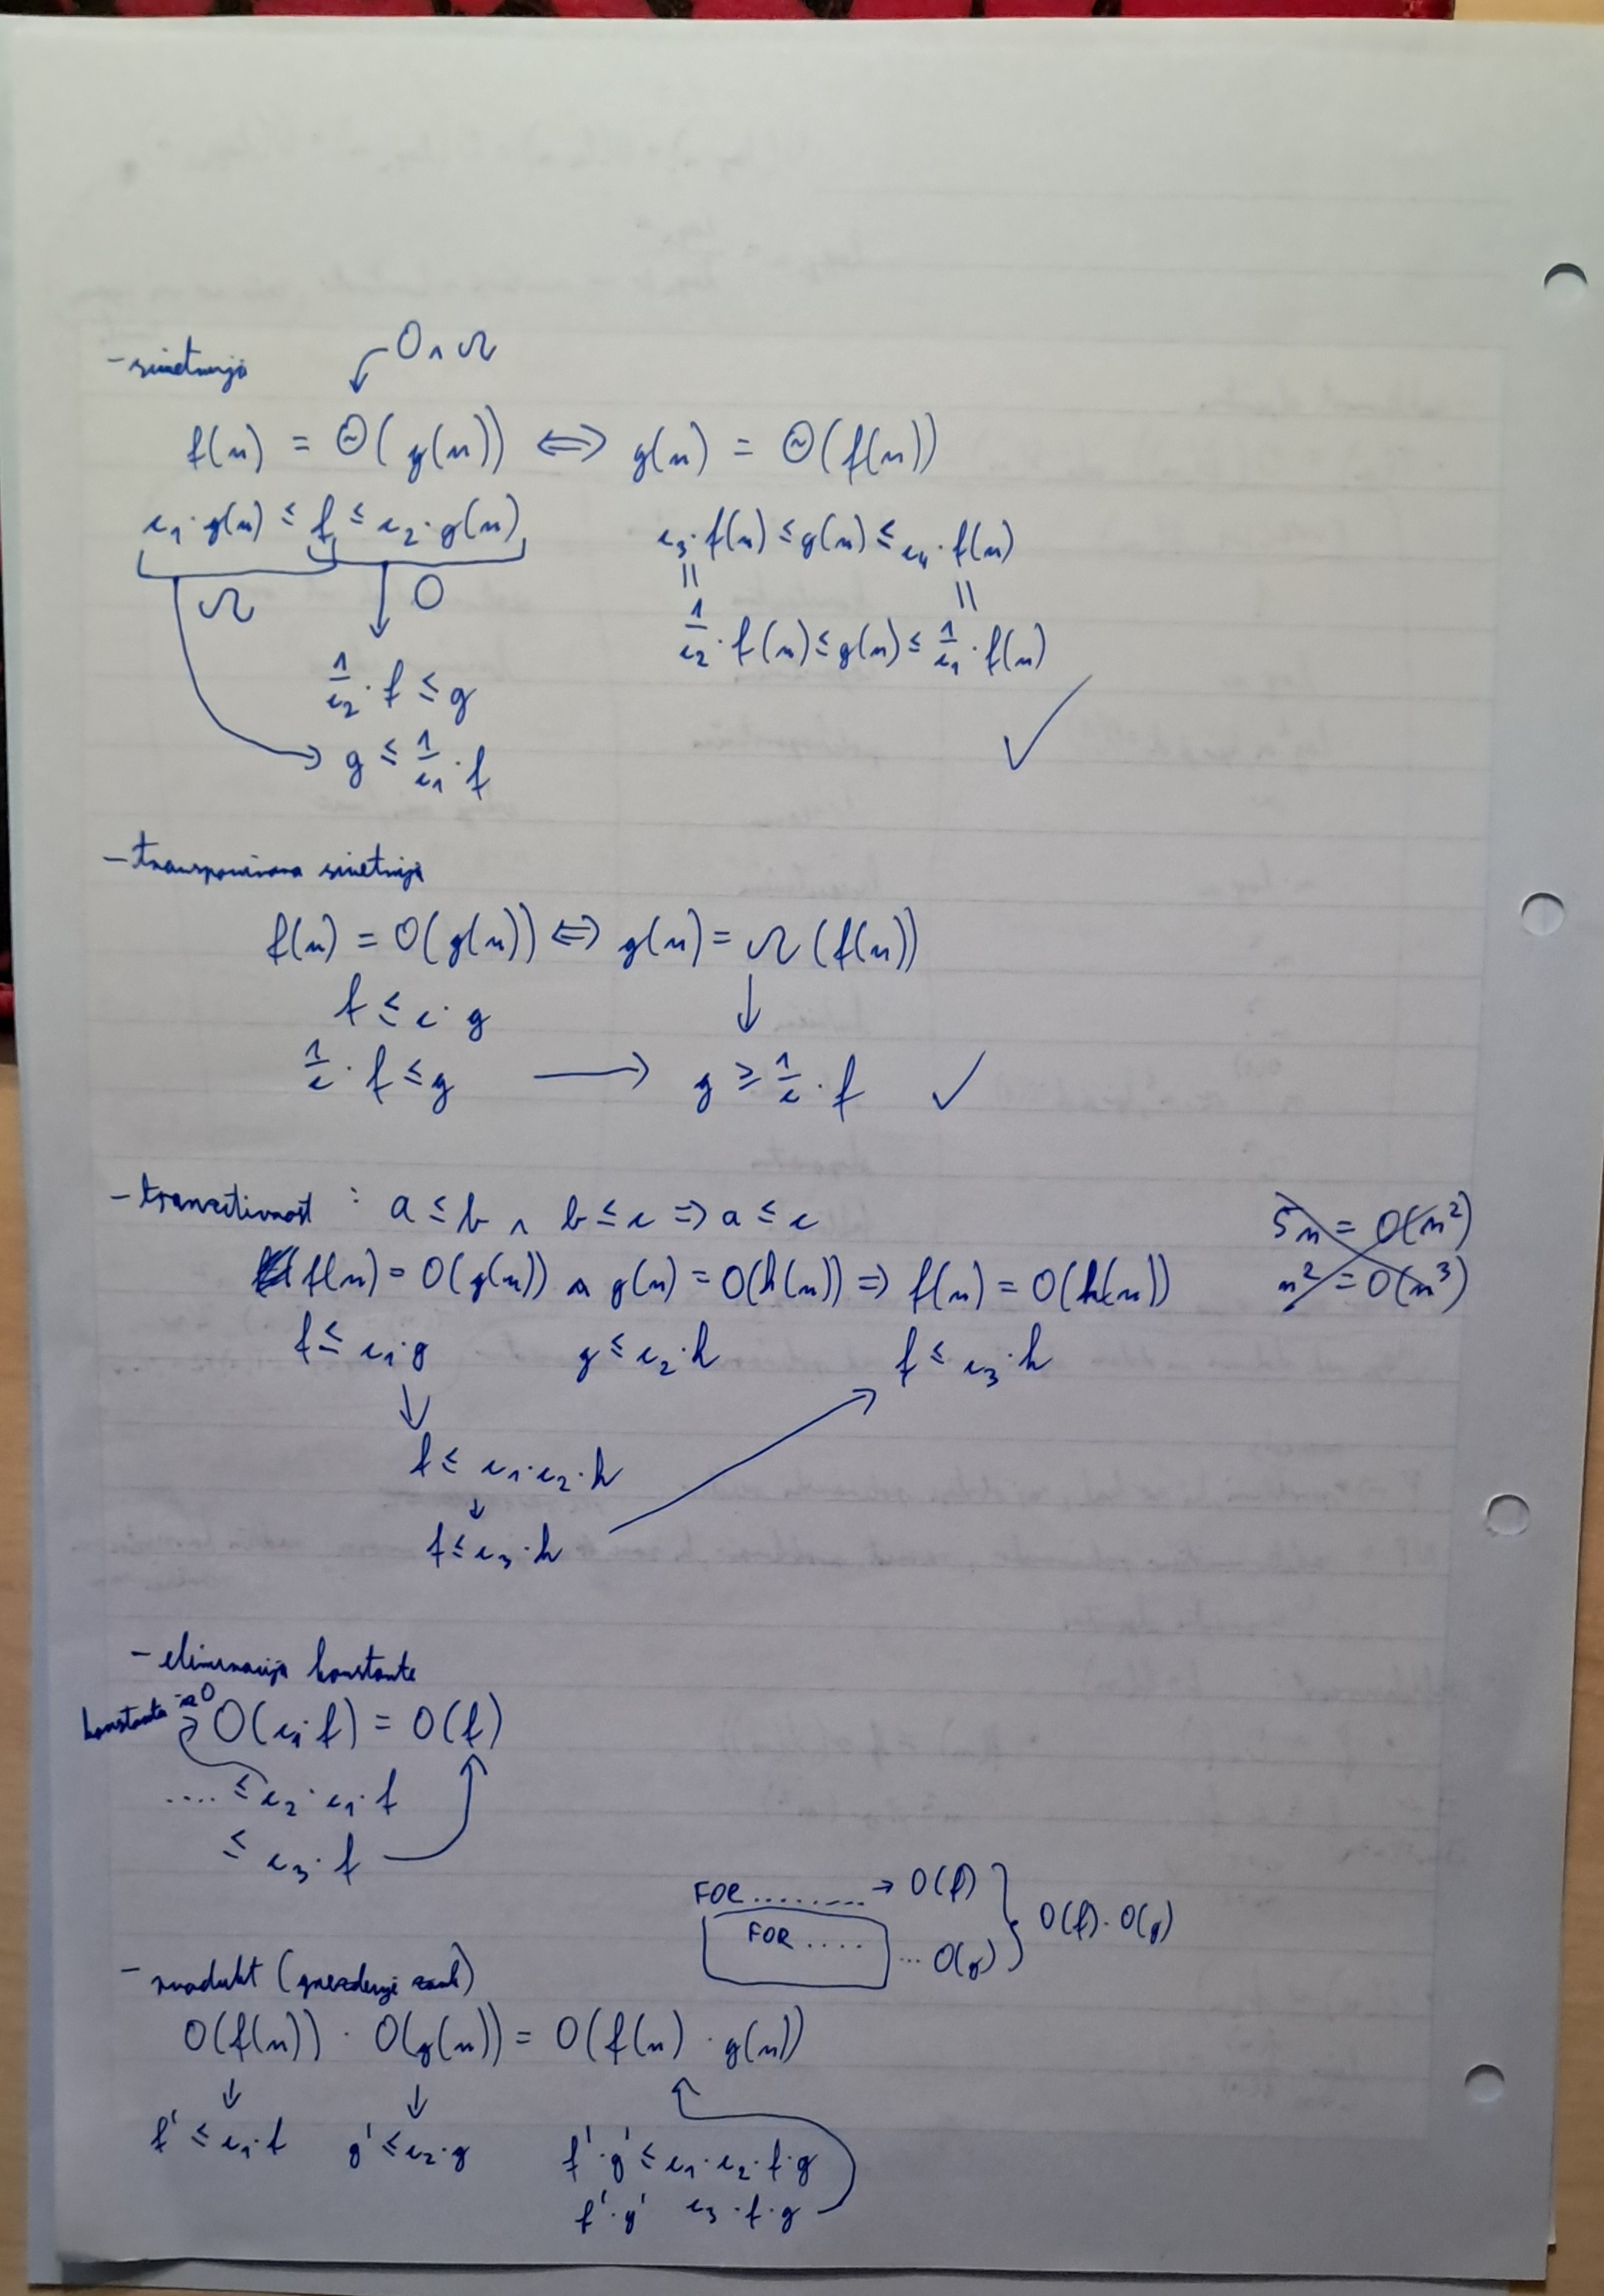 - simetrija
O ∧ Ω
f(n) = Θ(g(n)) ⇔ g(n) = Θ(f(n))
c₁·g(n) ≤ f ≤ c₂·g(n)
Ω O
1/c₂ · f ≤ g
g ≤ 1/c₁ · f
c₃·f(n) ≤ g(n) ≤ c₄·f(n)
|| ||
1/c₂ · f(n) ≤ g(n) ≤ 1/c₁ · f(n)
✓
- transponirana simetrija
f(n) = O(g(n)) ⇔ g(n) = Ω(f(n))
f ≤ c·g
1/c · f ≤ g → g ≥ 1/c · f ✓
- tranzitivnost : a ≤ b ∧ b ≤ c ⇒ a ≤ c
f(n) = O(g(n)) ∧ g(n) = O(h(n)) ⇒ f(n) = O(h(n))
5n = O(n²)
n² = O(n³)
f ≤ c₁·g g ≤ c₂·h f ≤ c₃·h
f ≤ c₁·c₂·h
f ≤ c₃·h
- eliminacija konstante
konstanta iz O
O(c₁·f) = O(f)
.... ≤ c₂·c₁·f
≤ c₃·f
FOR ......... → O(f)
FOR .... ... O(g)
O(f)·O(g)
- produkt (gnezdenje zank)
O(f(n)) · O(g(n)) = O(f(n) · g(n))
f' ≤ c₁·f g' ≤ c₂·g f'·g' ≤ c₁·c₂·f·g
f'·g' c₃·f·g